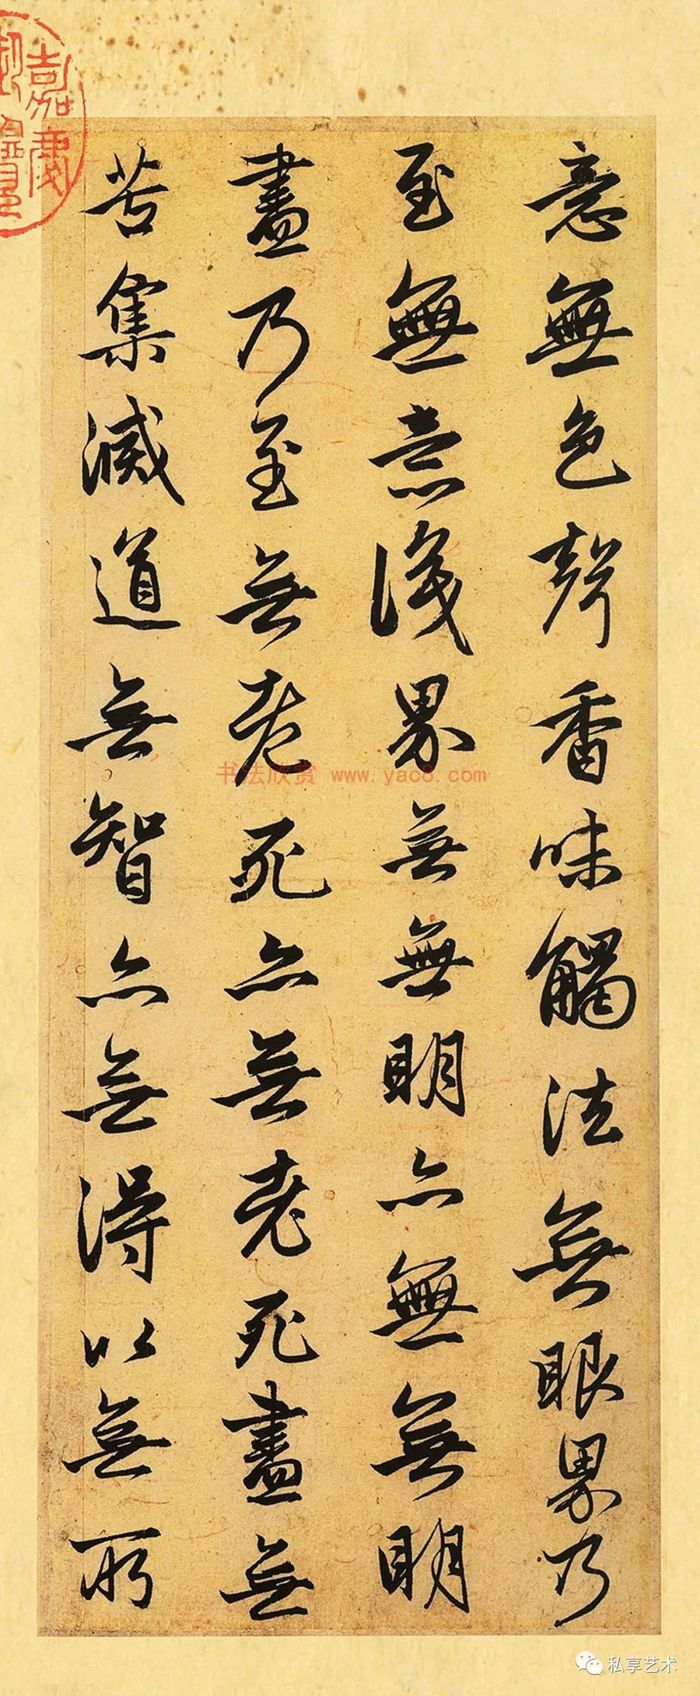 意無色聲香味觸法無眼界乃
至無意識界無無明亦無無明
盡乃至無老死亦無老死盡無
苦集滅道無智亦無得以無所
嘉慶
书法欣赏 www.yac8.com
私享艺术